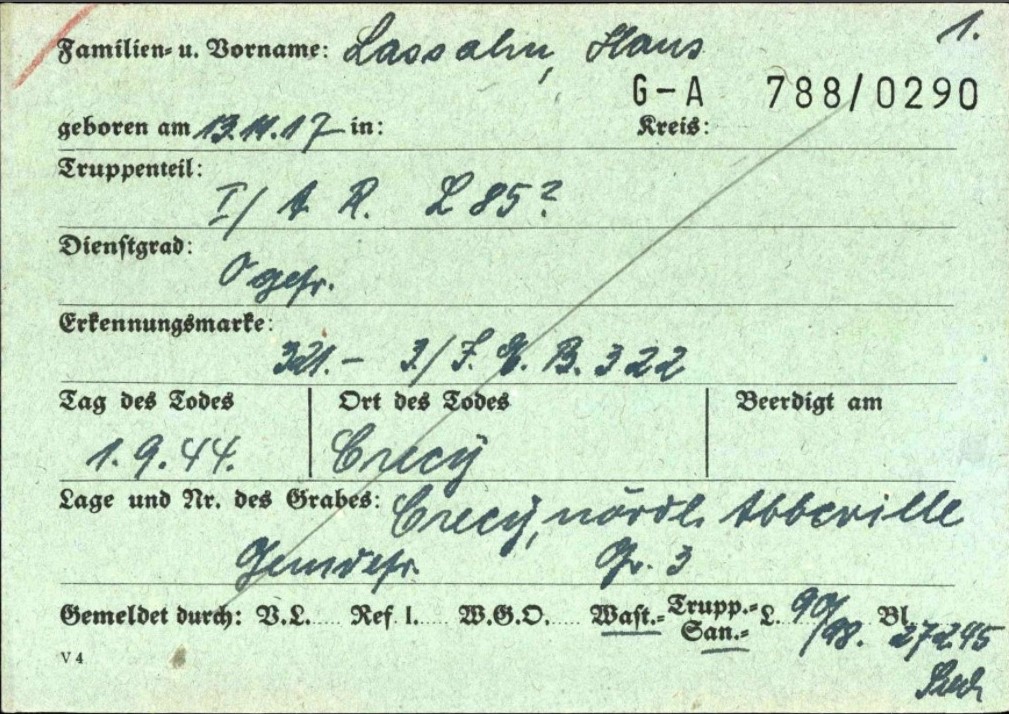 1.
Familien- u. Vorname: Lassahn, Hans
G-A 788/0290
geboren am 13.11.17 in: Kreis:
Truppenteil:
I/ A. R. L 85?
Dienstgrad:
Ogefr.
Erkennungsmarke:
321.- 3/ J. E. B. 322
Tag des Todes Ort des Todes Beerdigt am
1.9.44. Crecy
Lage und Nr. des Grabes: Crecy, nördl. Abbeville
Gemdefr. Gr. 3
Gemeldet durch: V.L. Ref I. W.G.O. Wast.- Trupp.- San.- L. 90/98. Bl. 27245
V 4